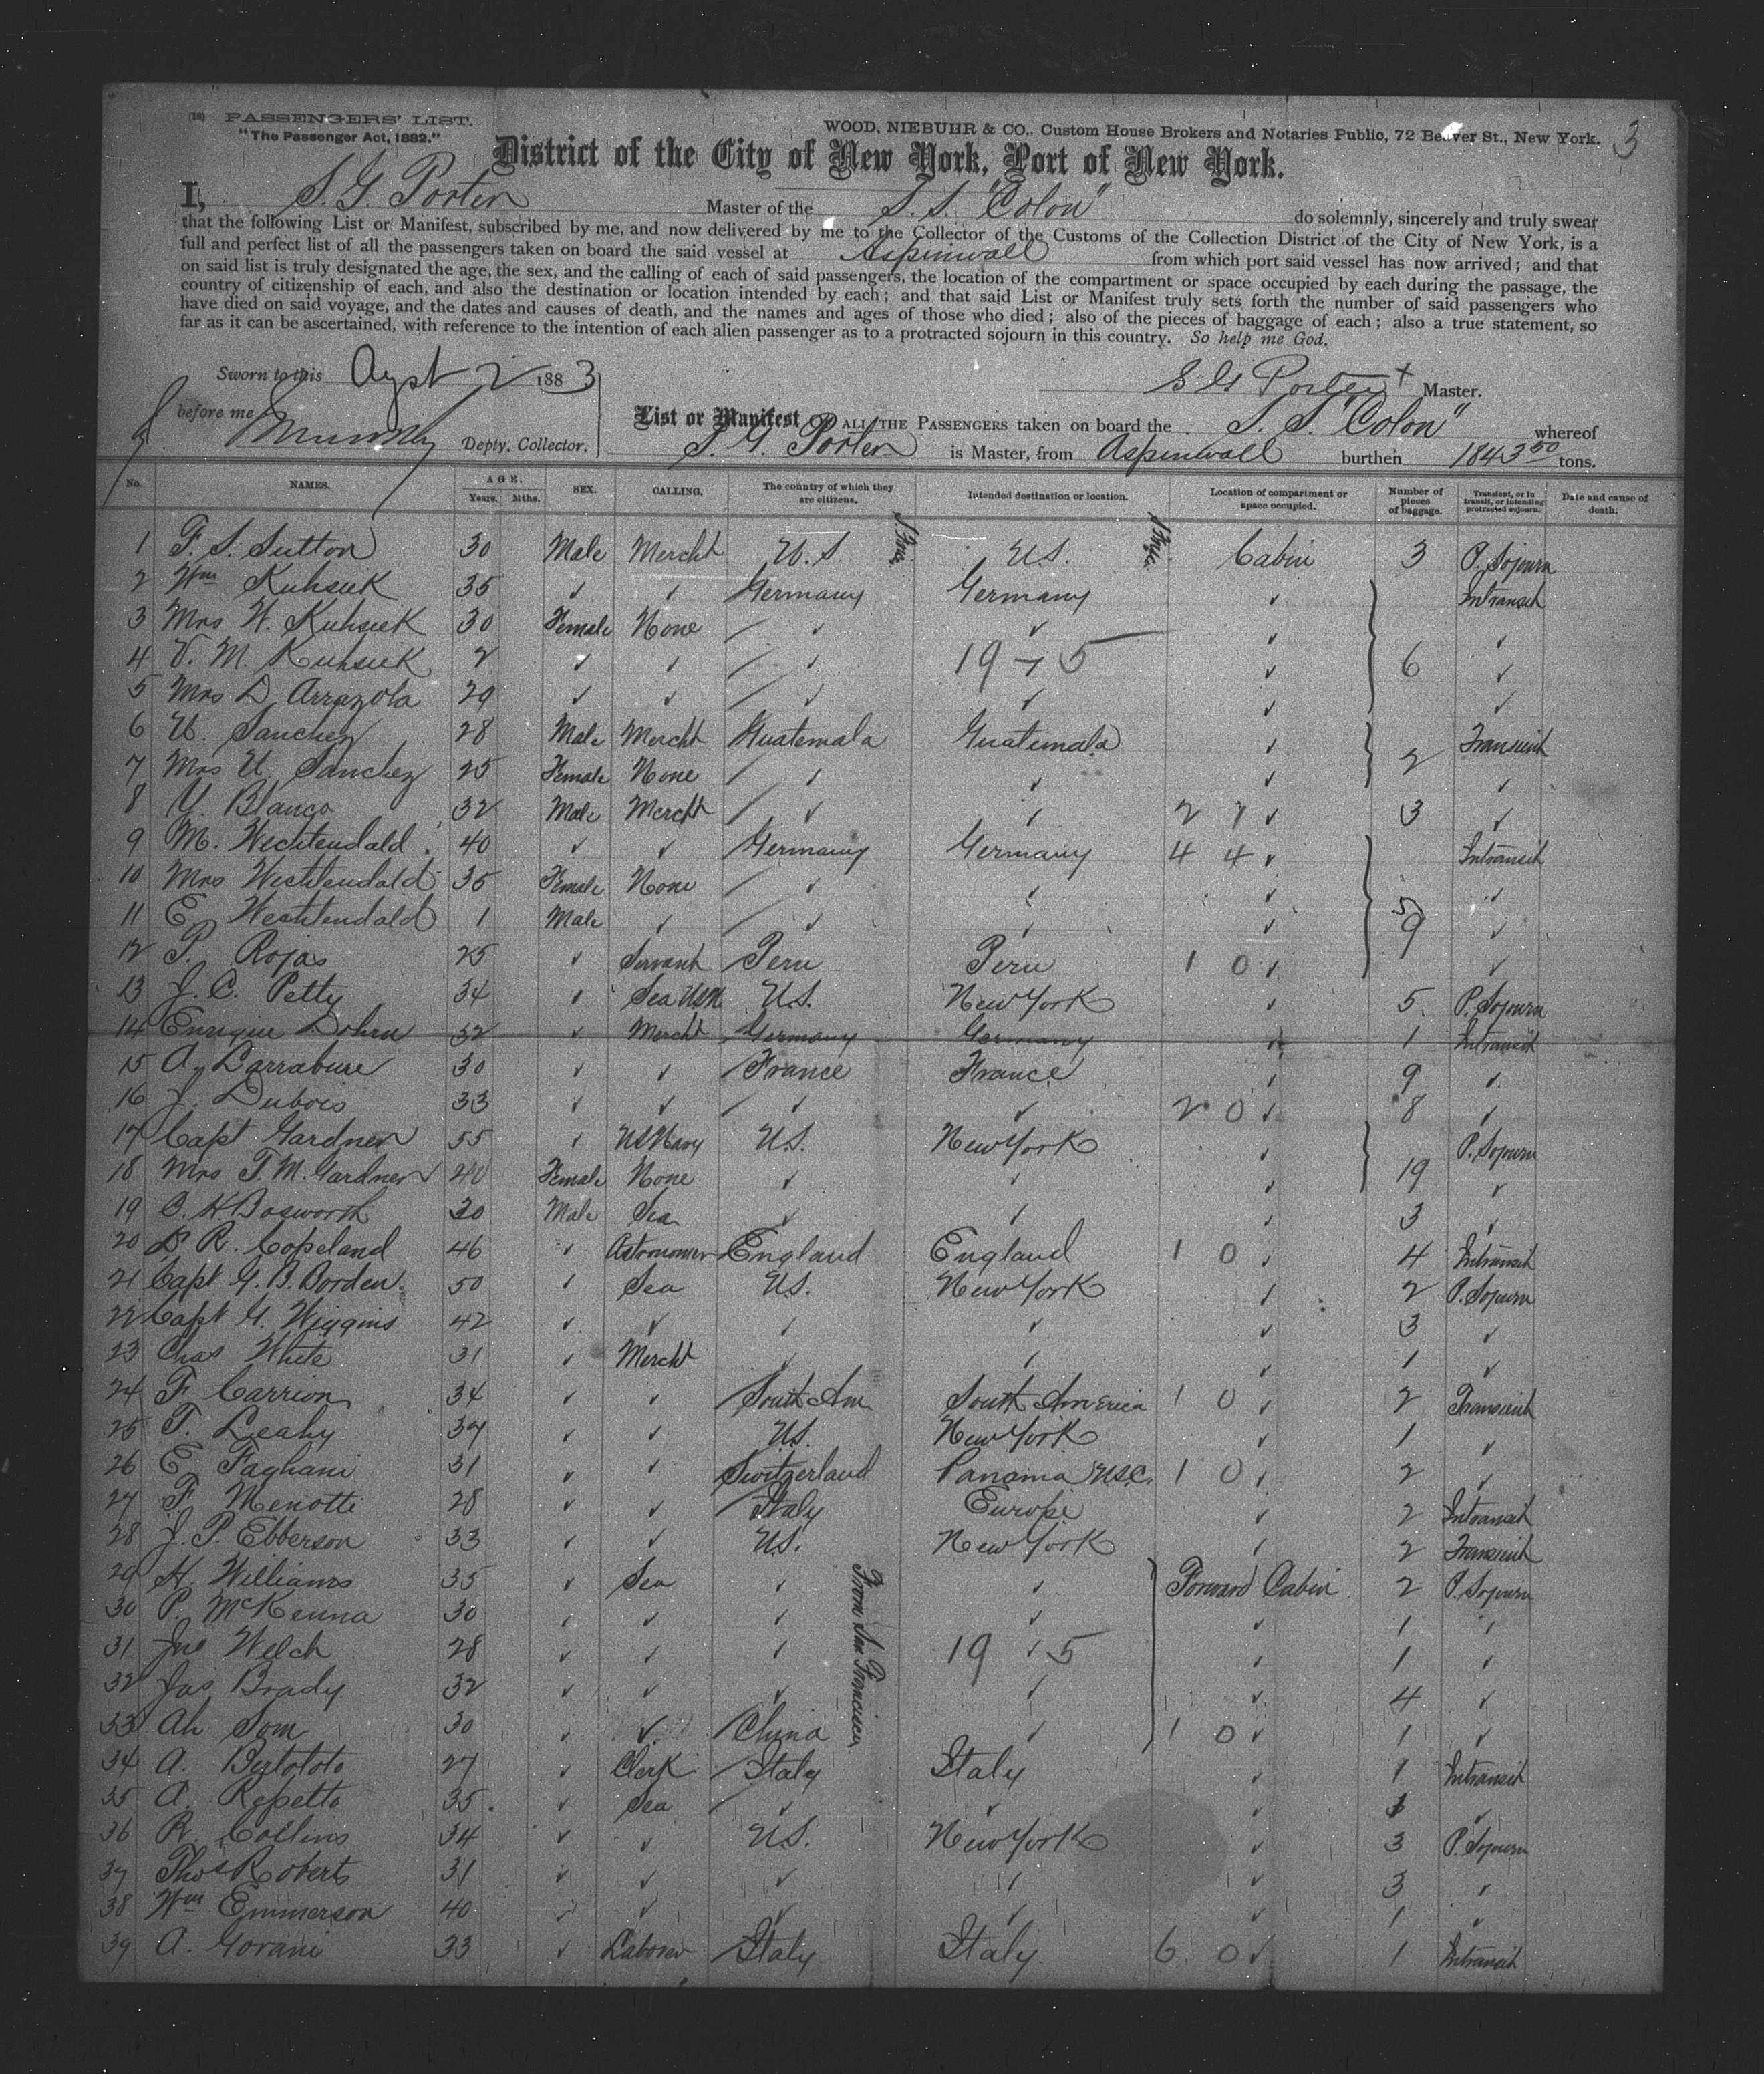 (18) PASSENGERS' LIST.
"The Passenger Act, 1882."
WOOD, NIEBUHR & CO., Custom House Brokers and Notaries Public, 72 Beaver St., New York.
3
District of the City of New York, Port of New York.
I, S. G. Porter Master of the S. S. "Colon" do solemnly, sincerely and truly swear
that the following List or Manifest, subscribed by me, and now delivered by me to the Collector of the Customs of the Collection District of the City of New York, is a
full and perfect list of all the passengers taken on board the said vessel at Aspinwall from which port said vessel has now arrived; and that
on said list is truly designated the age, the sex, and the calling of each of said passengers, the location of the compartment or space occupied by each during the passage, the
country of citizenship of each, and also the destination or location intended by each; and that said List or Manifest truly sets forth the number of said passengers who
have died on said voyage, and the dates and causes of death, and the names and ages of those who died; also of the pieces of baggage of each; also a true statement, so
far as it can be ascertained, with reference to the intention of each alien passenger as to a protracted sojourn in this country. So help me God.
Sworn to this Augst 2 1883
S G Porter + Master.
before me Depty. Collector.
List or Manifest OF ALL THE PASSENGERS taken on board the S. S. "Colon" whereof
S. G. Porter is Master, from Aspinwall burthen 1843 50 tons.
No. NAMES. AGE. Years. Mths. SEX. CALLING. The country of which they are citizens. Intended destination or location. Location of compartment or space occupied. Number of pieces of baggage. Transient, or in transit, or intending protracted sojourn. Date and cause of death.
1 F. S. Sutton 30 Male Mercht U. S U.S. Cabin 3 P. Sojourn
2 Wm Kuhsiek 35 ✓ ✓ Germany Germany ✓ Intransit
3 Mrs W. Kuhsiek 30 Female None ✓ ✓ ✓ ✓
4 V. M. Kuhsiek 2 ✓ ✓ ✓ 19 5 ✓ 6 ✓
5 Mrs D Arrazola 29 ✓ ✓ ✓ ✓ ✓ ✓
6 U. Sanchez 28 Male Mercht Guatemala Guatemala ✓ Transient
7 Mrs U. Sanchez 25 Female None ✓ ✓ ✓ 2 ✓
8 Y. Blanco 32 Male Mercht ✓ ✓ 2 7 ✓ 3 ✓
9 M. Wechtendald 40 ✓ ✓ Germany Germany 4 4 ✓ Intransit
10 Mrs Wechtendald 35 Female None ✓ ✓ ✓ ✓
11 E. Wechtendald 1 Male ✓ ✓ ✓ ✓ 9 ✓
12 P. Rojas 25 ✓ Servant Peru Peru 1 0 ✓ ✓
13 J. C. Petty 34 ✓ Sea USN U.S. New York ✓ 5 P. Sojourn
14 Enrique Dohrn 32 ✓ Mercht Germany Germany ✓ 1 Intransit
15 A. Larrabure 30 ✓ ✓ France France ✓ 9 ✓
16 J. Dubois 33 ✓ ✓ ✓ ✓ 2 0 ✓ 8 ✓
17 Capt Gardner 55 ✓ US Navy U.S. New York ✓ P. Sojourn
18 Mrs T. M. Gardner 40 Female None ✓ ✓ ✓ 19 ✓
19 C. H. Bosworth 30 Male Sea ✓ ✓ ✓ 3 ✓
20 Dr R. Copeland 46 ✓ Astronomer England England 1 0 ✓ 4 Intransit
21 Capt G. B. Borden 50 ✓ Sea U.S. New York ✓ 2 P. Sojourn
22 Capt G. Wiggins 42 ✓ ✓ ✓ ✓ ✓ 3 ✓
23 Chas White 31 ✓ Mercht ✓ ✓ ✓ 1 ✓
24 F. Carrion 34 ✓ ✓ South Am South America 1 0 ✓ 2 Transient
25 T. Leahy 37 ✓ ✓ U.S. New York ✓ 1 ✓
26 E. Faghani 31 ✓ ✓ Switzerland Panama U.S.C. 1 0 ✓ 2 ✓
27 F. Menotti 28 ✓ ✓ Italy Europe ✓ 2 Intransit
28 J. P. Ebberson 33 ✓ ✓ U.S. New York ✓ 2 Transient
29 H. Williams 35 ✓ Sea ✓ ✓ Forward Cabin 2 P. Sojourn
30 P. McKenna 30 ✓ ✓ ✓ ✓ ✓ 1 ✓
31 Jno Welch 28 ✓ ✓ ✓ 19 ✓ 5 ✓ 1 ✓
32 Jas Brady 32 ✓ ✓ ✓ ✓ ✓ 4 ✓
From San Francisco
33 Ah Som 30 ✓ ✓ China ✓ 1 0 ✓ 1 ✓
34 A. Bertoloto 27 ✓ Clerk Italy Italy ✓ 1 Intransit
35 A. Repetto 35 ✓ Sea ✓ ✓ ✓ 1 ✓
36 R. Collins 34 ✓ ✓ U.S. New York ✓ 3 P. Sojourn
37 Thos Roberts 31 ✓ ✓ ✓ ✓ ✓ 3 ✓
38 Wm Emmerson 40 ✓ ✓ ✓ ✓ ✓ 1 ✓
39 A. Gorani 33 ✓ Laborer Italy Italy 6 0 ✓ 1 Intransit